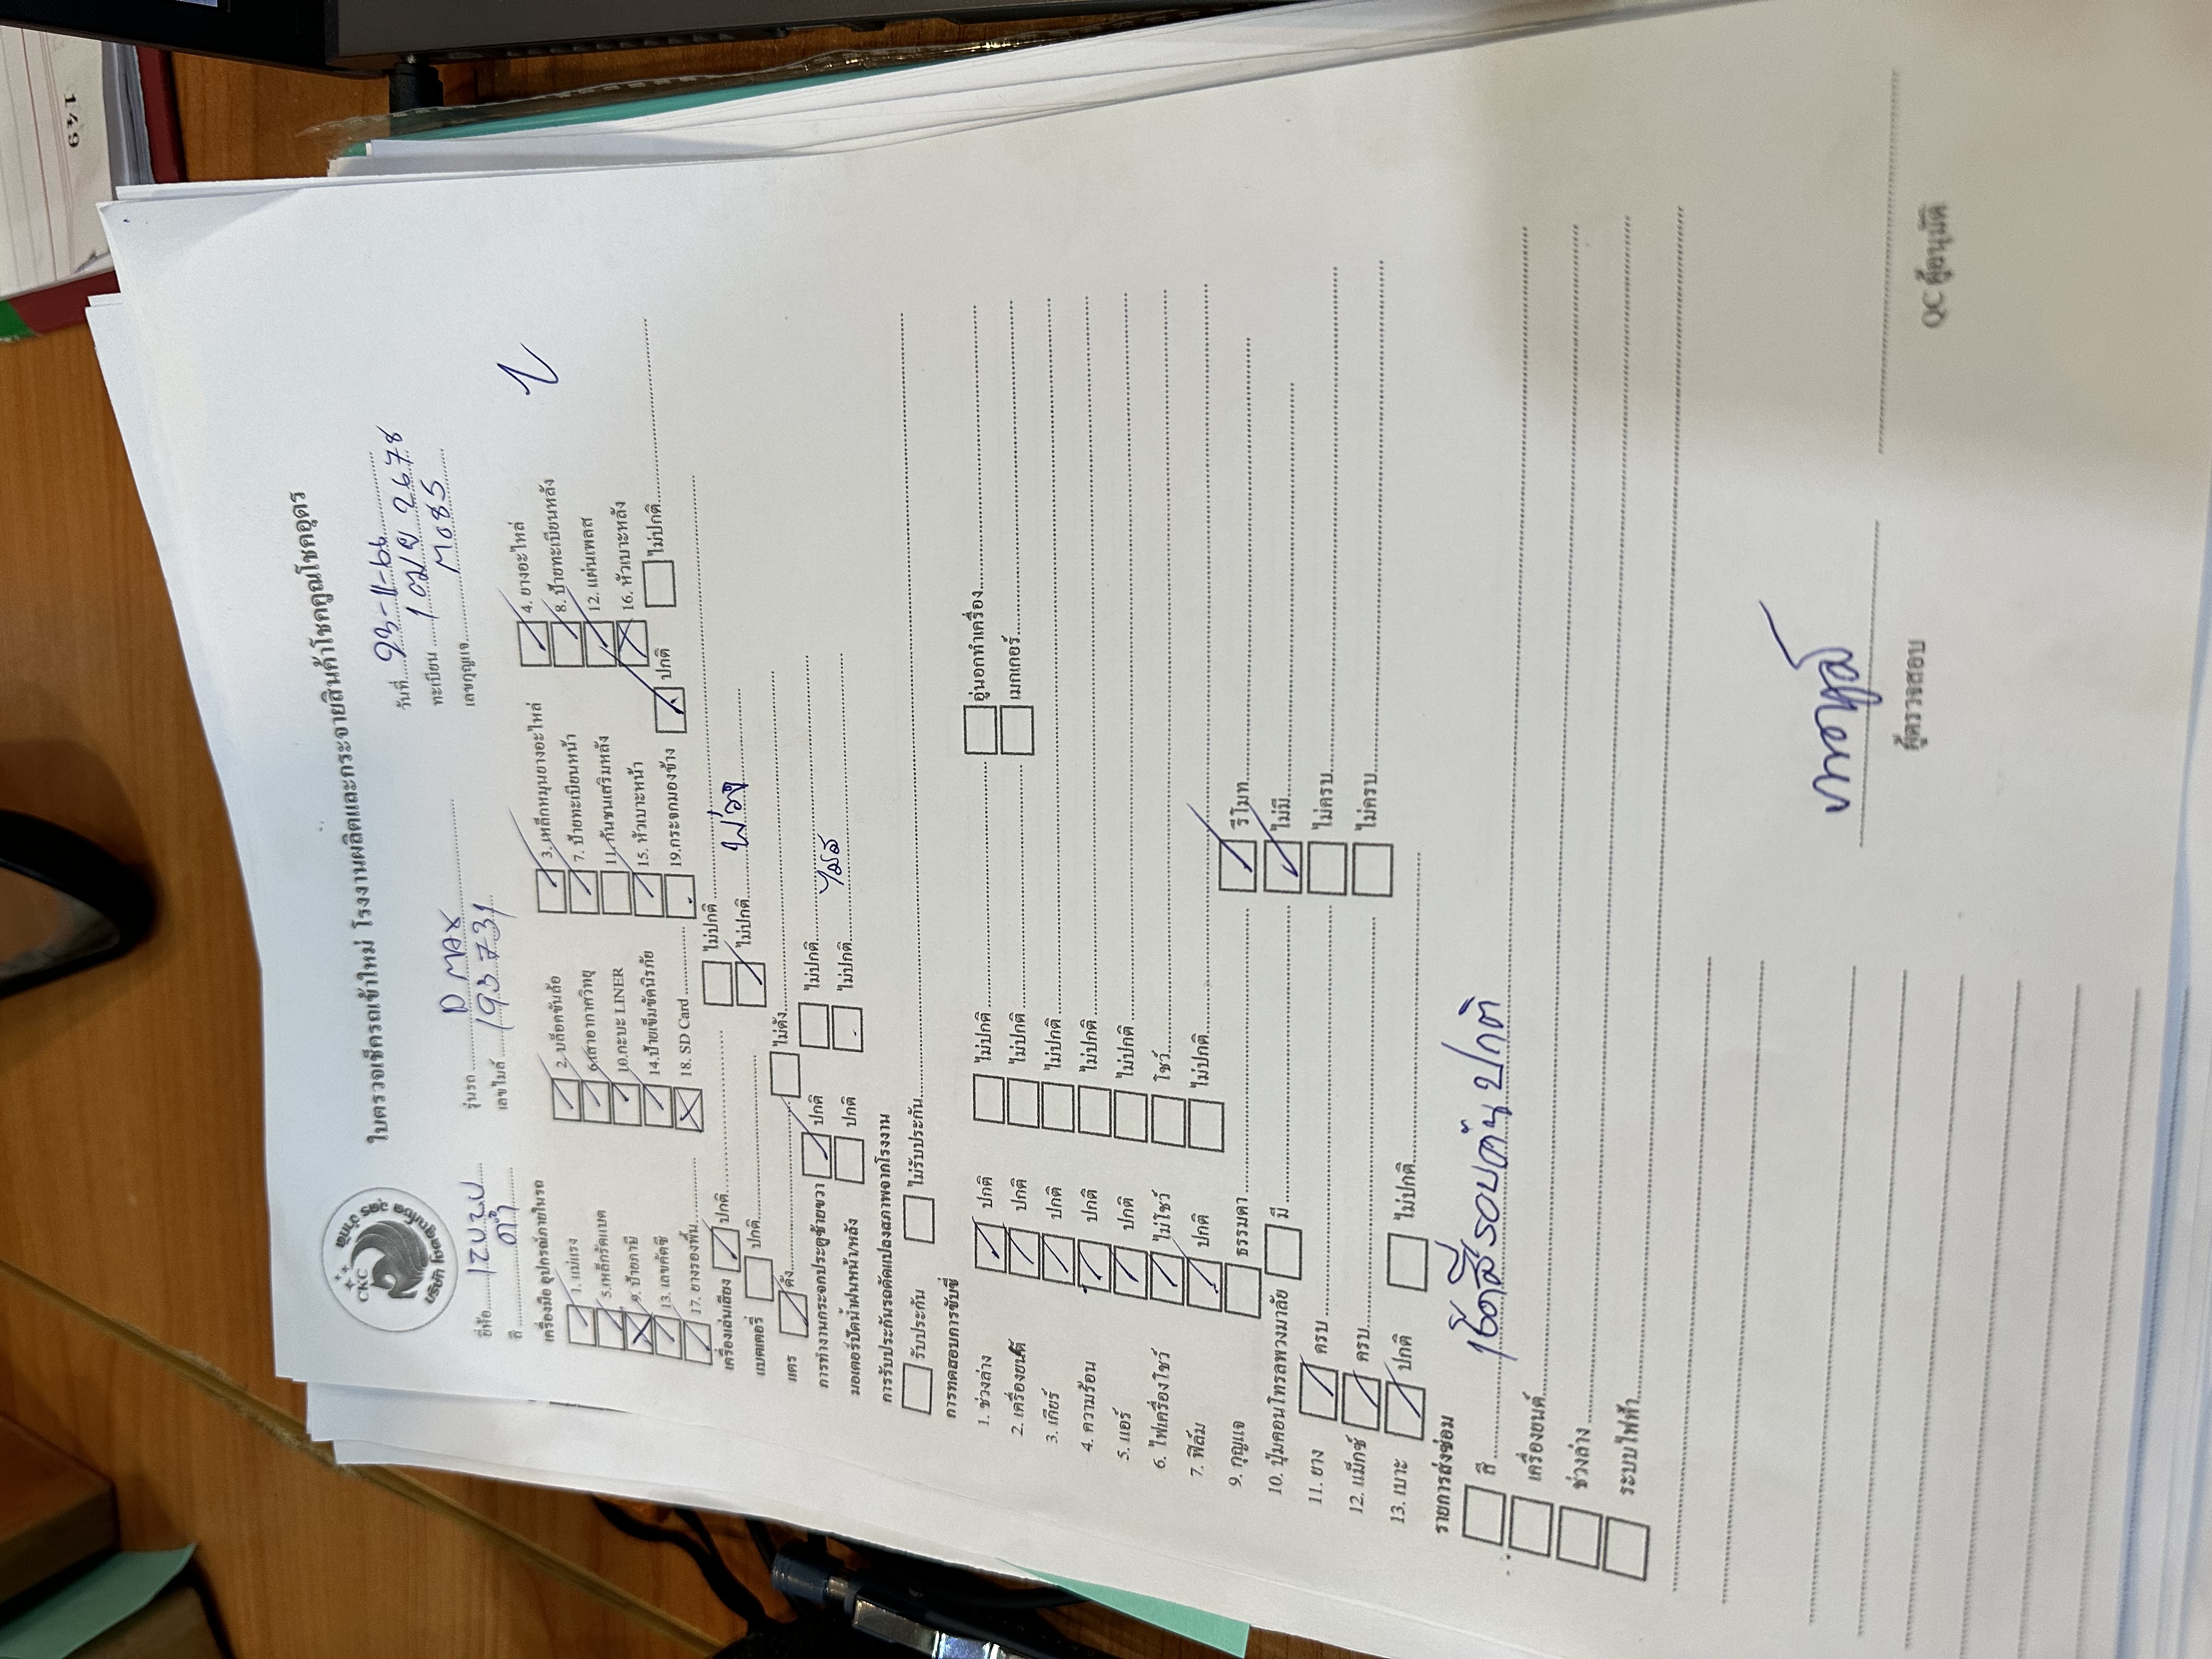 149
CKC
บริษัท โชคคูณโชค อุดร จำกัด
ใบตรวจเช็ครถเข้าใหม่ โรงงานผลิตและกระจายสินค้าโชคคูณโชคอุดร
วันที่ 23-11-66
ยี่ห้อ รุ่นรถ D MAX ทะเบียน 1ฒย 2678
สี ดำ เลขไมล์ 193731 เลขกุญแจ M085
เครื่องมือ อุปกรณ์ภายในรถ
1. แม่แรง 2. บล็อกขันล้อ 3. เหล็กหมุนยางอะไหล่ 4. ยางอะไหล่
5. เหล็กรัดแบต 6. เสาอากาศวิทยุ 7. ป้ายทะเบียนหน้า 8. ป้ายทะเบียนหลัง
9. ป้ายภาษี 10. กะบะ LINER 11. กันชนเสริมหลัง 12. แผ่นเพลส
13. เลขคัตซี 14. ป้ายเข็มขัดนิรภัย 15. หัวเบาะหน้า 16. หัวเบาะหลัง
17. ยางรองพื้น 18. SD Card 19. กระจกมองข้าง ปกติ ไม่ปกติ
เครื่องเล่นเสียง ปกติ ไม่ปกติ
แบตเตอรี่ ปกติ ไม่ปกติ
แตร ดัง ไม่ดัง
การทำงานกระจกประตูซ้ายขวา ปกติ ไม่ปกติ
มอเตอร์ปัดน้ำฝนหน้า/หลัง ปกติ ไม่ปกติ
การรับประกันรถดัดแปลงสภาพจากโรงงาน
รับประกัน ไม่รับประกัน
การทดสอบการขับขี่
1. ช่วงล่าง ปกติ ไม่ปกติ อู่นอกทำเครื่อง
2. เครื่องยนต์ ปกติ ไม่ปกติ เมกเกอร์
3. เกียร์ ปกติ ไม่ปกติ
4. ความร้อน ปกติ ไม่ปกติ
5. แอร์ ปกติ ไม่ปกติ
6. ไฟเครื่องโชว์ ไม่โชว์ โชว์
7. ฟิล์ม ปกติ ไม่ปกติ
9. กุญแจ ธรรมดา รีโมท
10. ปุ่มคอนโทรลพวงมาลัย มี ไม่มี
11. ยาง ครบ ไม่ครบ
12. แม็กซ์ ครบ ไม่ครบ
13. เบาะ ปกติ ไม่ปกติ
รายการส่งซ่อม
สี เช็คสีรอบคัน ปกติ
เครื่องยนต์
ช่วงล่าง
ระบบไฟฟ้า
ผู้ตรวจสอบ QC ผู้อนุมัติ